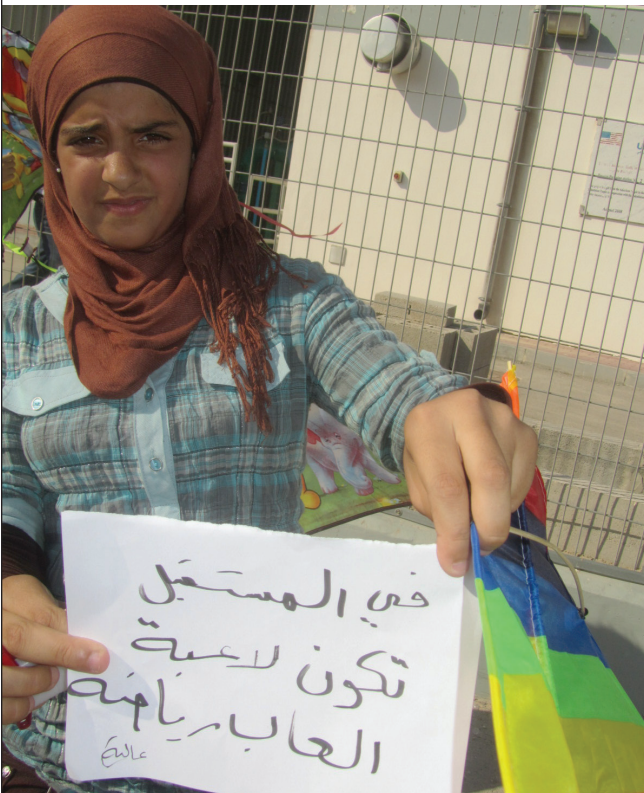 في المستقبل
تكون لاعبة
العاب رياضه